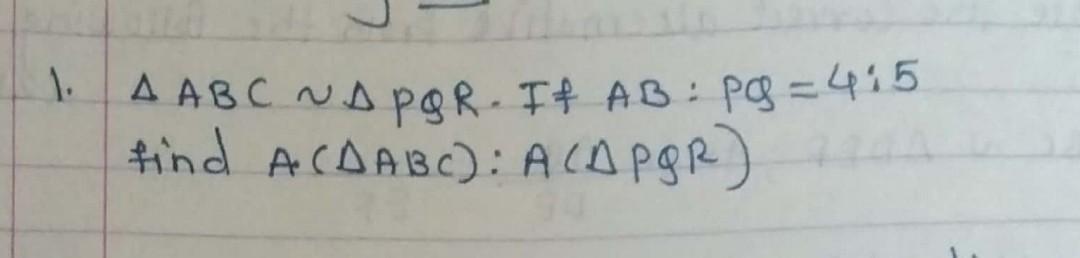 1. Δ ABC ~ Δ PQR. If AB : PQ = 4:5
find A(ΔABC) : A(ΔPQR)